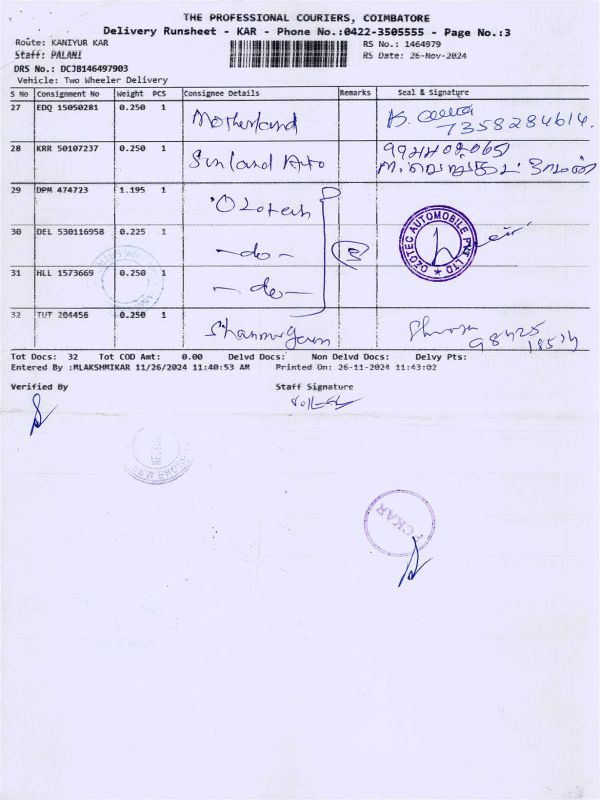 THE PROFESSIONAL COURIERS, COIMBATORE
Delivery Runsheet - KAR - Phone No.:0422-3505555 - Page No.:3
Route: KANIYUR KAR
RS No.: 1464979
Staff: PALANI
RS Date: 26-Nov-2024
DRS No.: DCJB146497903
Vehicle: Two Wheeler Delivery
S No Consignment No Weight PCS Consignee Details Remarks Seal & Signature
27 EDQ 15050281 0.250 1 Motherland 7358284614.
28 KRR 50107237 0.250 1 Sunland Auto
29 DPM 474723 1.195 1 Ozotech
30 DEL 530116958 0.225 1 -do- 3
OZOTEC AUTOMOBILE PVT LTD
31 HLL 1573669 0.250 1 -do-
32 TUT 204456 0.250 1 Shanmugam
Tot Docs: 32 Tot COD Amt: 0.00 Delvd Docs: Non Delvd Docs: Delvy Pts:
Entered By :MLAKSHMIKAR 11/26/2024 11:40:53 AM Printed On: 26-11-2024 11:43:02
Verified By Staff Signature